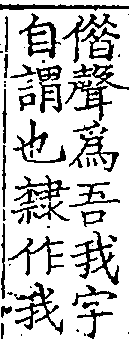 偕聲爲吾我字
自謂也隷作我